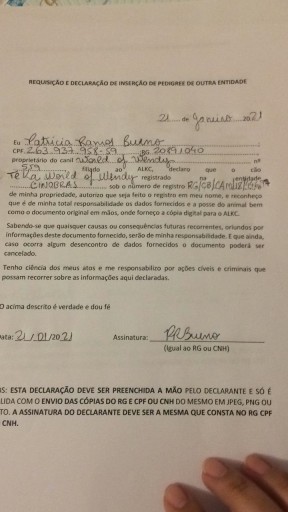 REQUISIÇÃO E DECLARAÇÃO DE INSERÇÃO DE PEDIGREE DE OUTRA ENTIDADE
21 de Janeiro 2021
Eu Patricia Ramos Bueno
CPF. 263.937.958-59 RG. 20891040
proprietário do canil World of Wendy nº
559 filiado ao ALKC, declaro que o cão
Tela World of Wendy registrado na entidade
CINOBRAS sob o número de registro
de minha propriedade, autorizo que seja feito o registro em meu nome, e reconheço
que é de minha total responsabilidade os dados fornecidos e a posse do animal bem
como o documento original em mãos, onde forneço a cópia digital para o ALKC.
Sabendo-se que quaisquer causas ou consequências futuras recorrentes, oriundos por
informações deste documento fornecido, serão de minha responsabilidade. E que ainda,
caso ocorra algum desencontro de dados fornecidos o documento poderá ser
cancelado.
Tenho ciência dos meus atos e me responsabilizo por ações cíveis e criminais que
possam recorrer sobre as informações aqui declaradas.
O acima descrito é verdade e dou fé
ata: 21/01/2021 Assinatura: PRBueno
(Igual ao RG ou CNH)
S: ESTA DECLARAÇÃO DEVE SER PREENCHIDA A MÃO PELO DECLARANTE E SÓ É
LIDA COM O ENVIO DAS CÓPIAS DO RG E CPF OU CNH DO MESMO EM JPEG, PNG OU
TO. A ASSINATURA DO DECLARANTE DEVE SER A MESMA QUE CONSTA NO RG CPF
CNH.